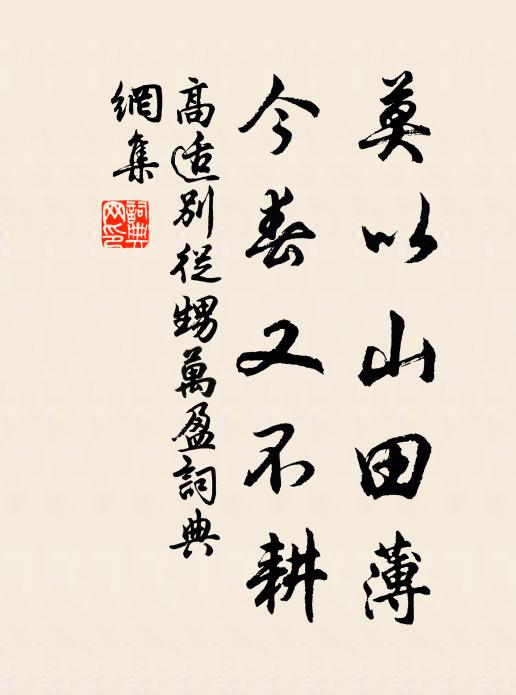 莫以山田薄
今春又不耕
高适別從甥萬盈詞典
網集
詞典網印